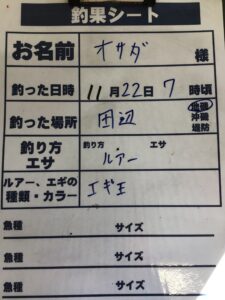 釣果シート
お名前 オサダ 様
釣った日時 11月22日7 時頃
釣った場所 田辺 地磯
沖磯
堤防
釣り方 エサ 釣り方 ルアー エサ
ルアー、エギの種類・カラー エギ王
魚種 サイズ
魚種 サイズ
魚種 サイズ